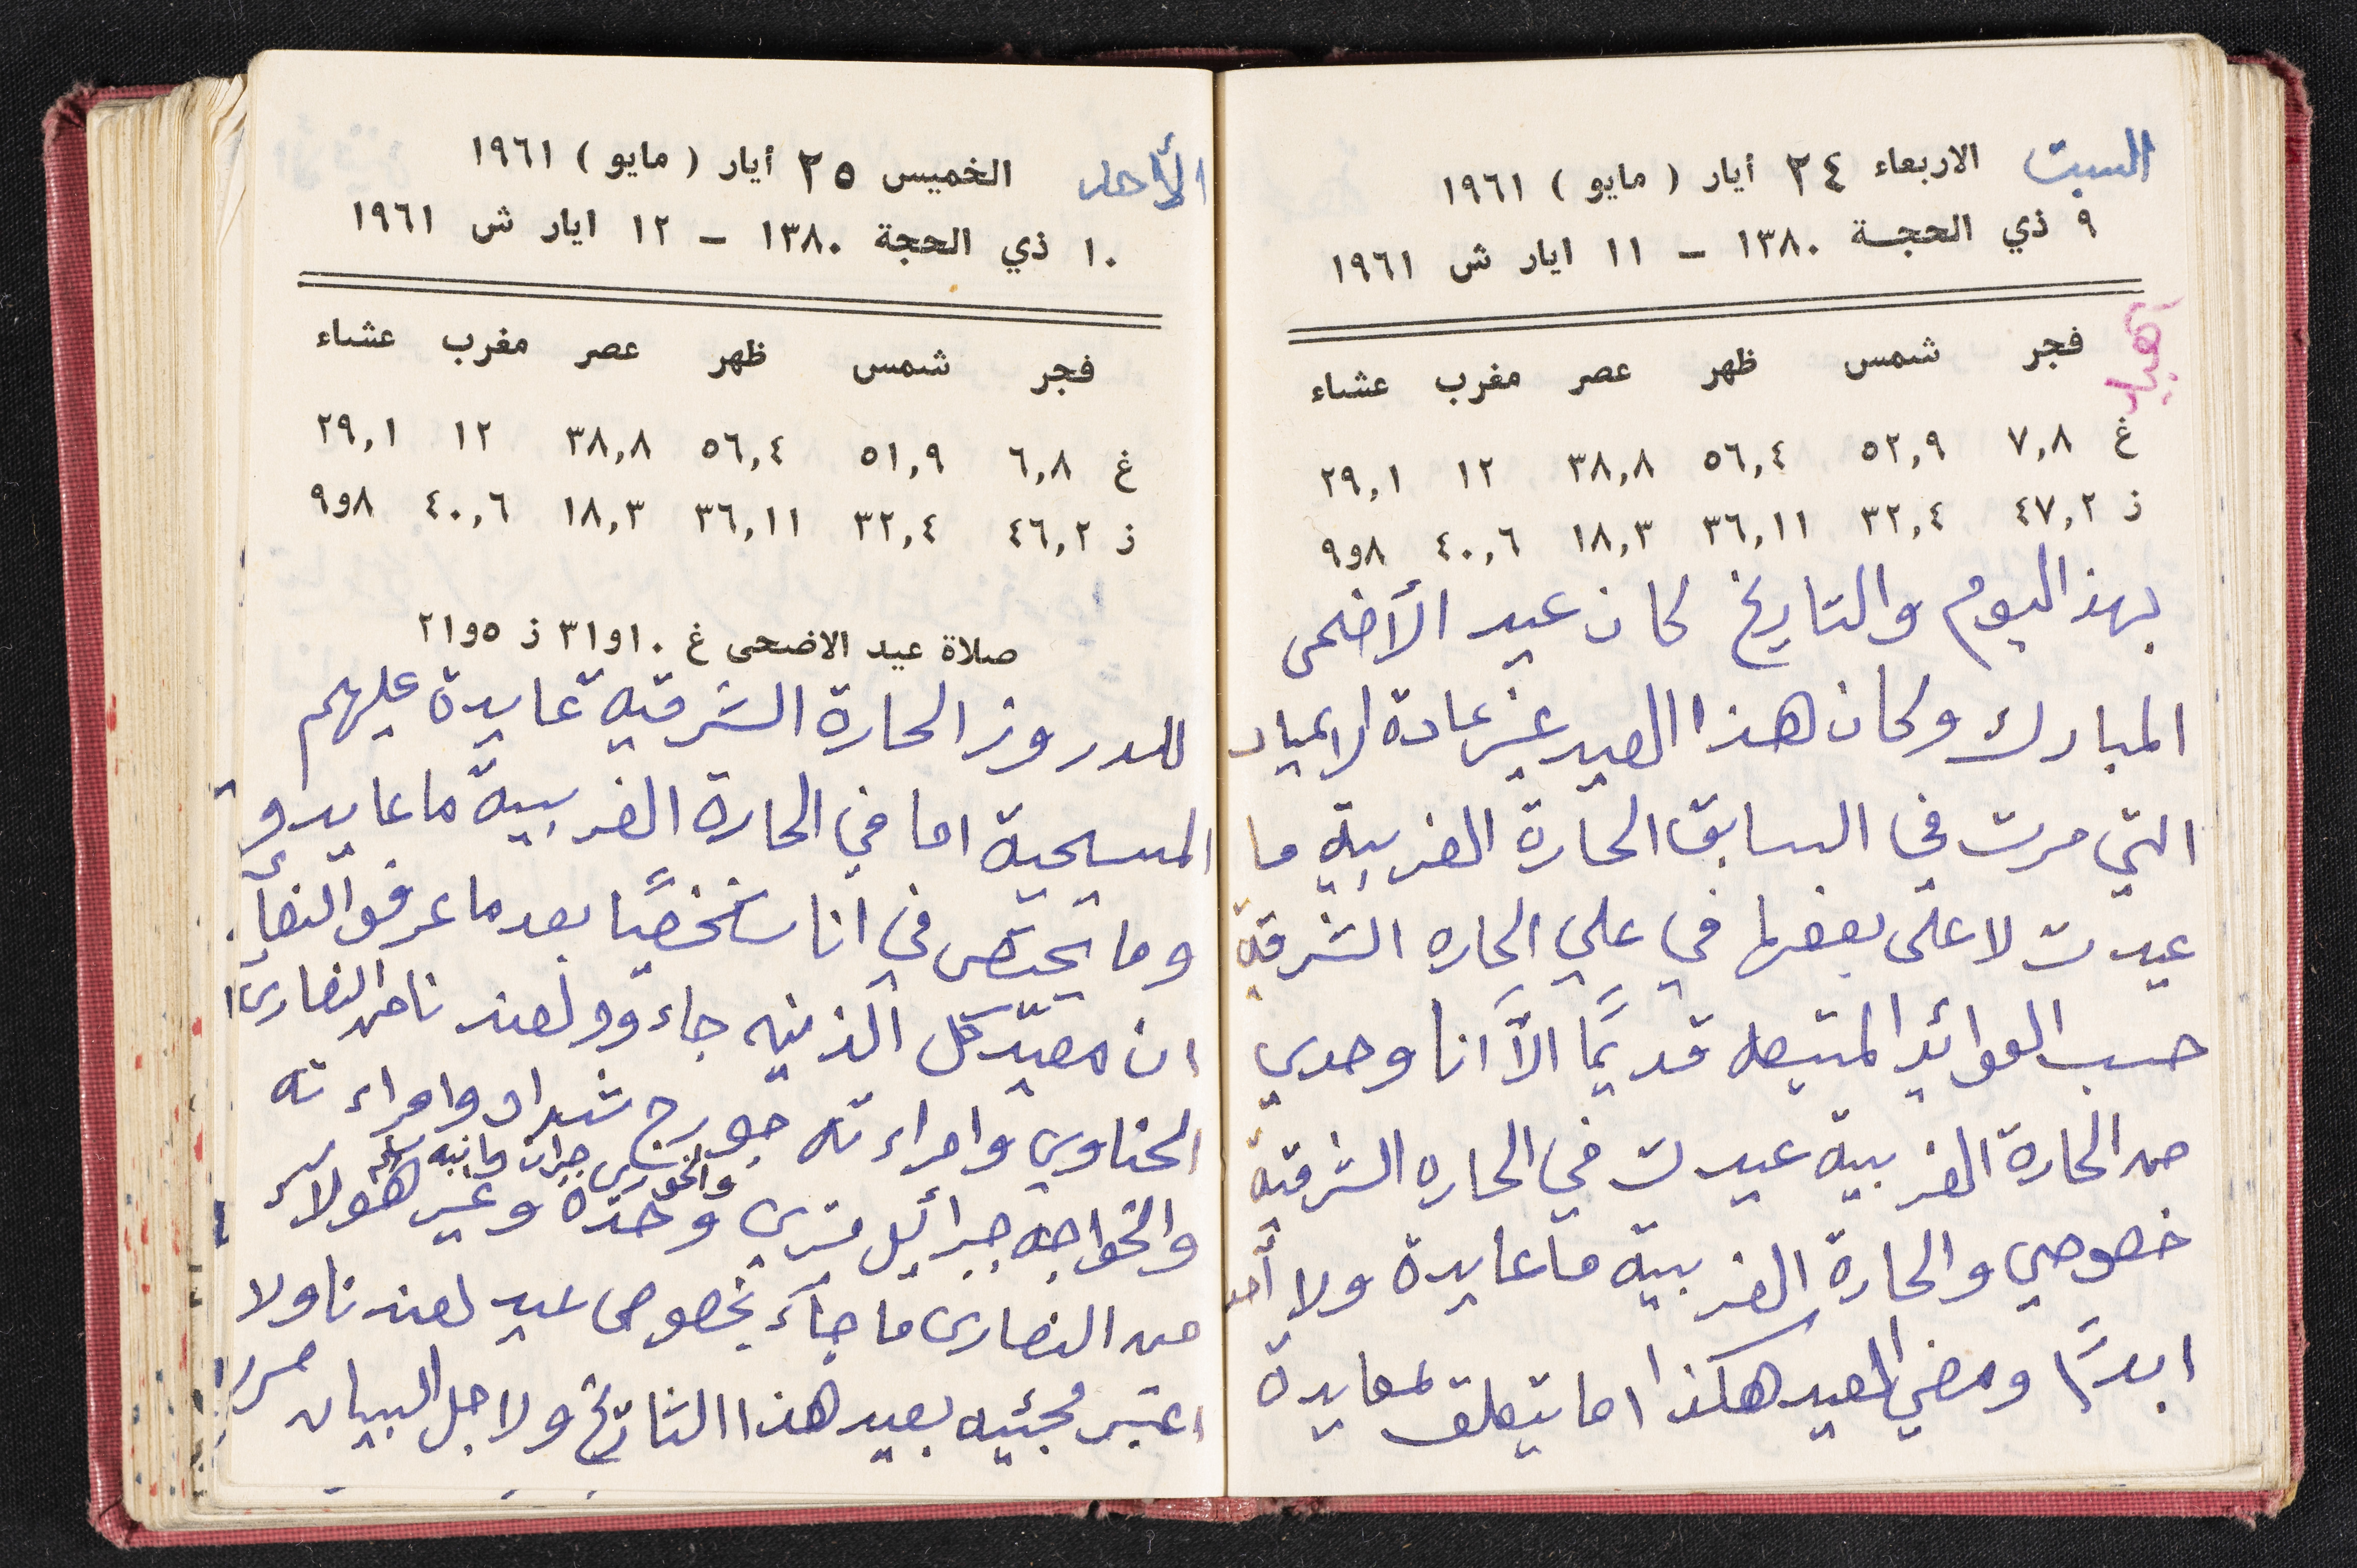 السبت الاربعاء ٢٤ أيار ( مايو ) ١٩٦١
٩ ذي الحجة ١٣٨٠ – ١١ ايار ش ١٩٦١
فجر شمس ظهر عصر مغرب عشاء
غ ٧,٨ ٥٢,٩ ٥٦,٤ ٣٨,٨ ١٢ ٢٩,١
ز ٤٧,٢ ٣٢,٤ ٣٦,١١ ١٨,٣ ٤٠,٦ ٨و٩
بهذا اليوم والتاريخ كان عيد الأضحى
المبارك وكان هذا العيد غير عادة الاعياد
التي مرت في السابق الحارة الغربية ما
عيدت لا على بعضها في علي الحاره الشرقية
حسب العوائد المتبعه قديمًا الاَّ انا وحدي
من الحارة الغربية عيدت في الحاره الشرقية
خصوصي والحارة الغربية ما عايدة ولا أحد
ابدًا ومضي العيد هكذا اما يتعلق لمعايدة
الأحد الخميس ٢٥ أيار ( مايو ) ١٩٦١
١٠ ذي الحجة ١٣٨٠ – ١٢ ايار ش ١٩٦١
فجر شمس ظهر عصر مغرب عشاء
غ ٦,٨ ٥١,٩ ٥٦,٤ ٣٨,٨ ١٢ ٢٩,١
ز ٤٦,٢ ٣٢,٤ ٣٦,١١ ١٨,٣ ٤٠,٦ ٨و٩
صلاة عيد الاضحى غ ١٠و٣١ ز ٥و٢١
للدروز الحارة الشرقية عايدة عليهم
المسيحية اما في الحارة الغربية ما عايدو
وما يختص في انا شخصيًا بعدما عرفو النصا
ان معيّد كل الذينه جاءوو لعندنا من النصارى
الحناوي وامراءته جورج شداد وامراءته
والخوري جبران
والخواجه جبرائيل متري وحده وغير هولاء
من النصارى ما جاءَ بخصوص عيد لعندنا ولا
اعتبر مجئيه بعيد هذا التاريخ ولاجل البيان حرر